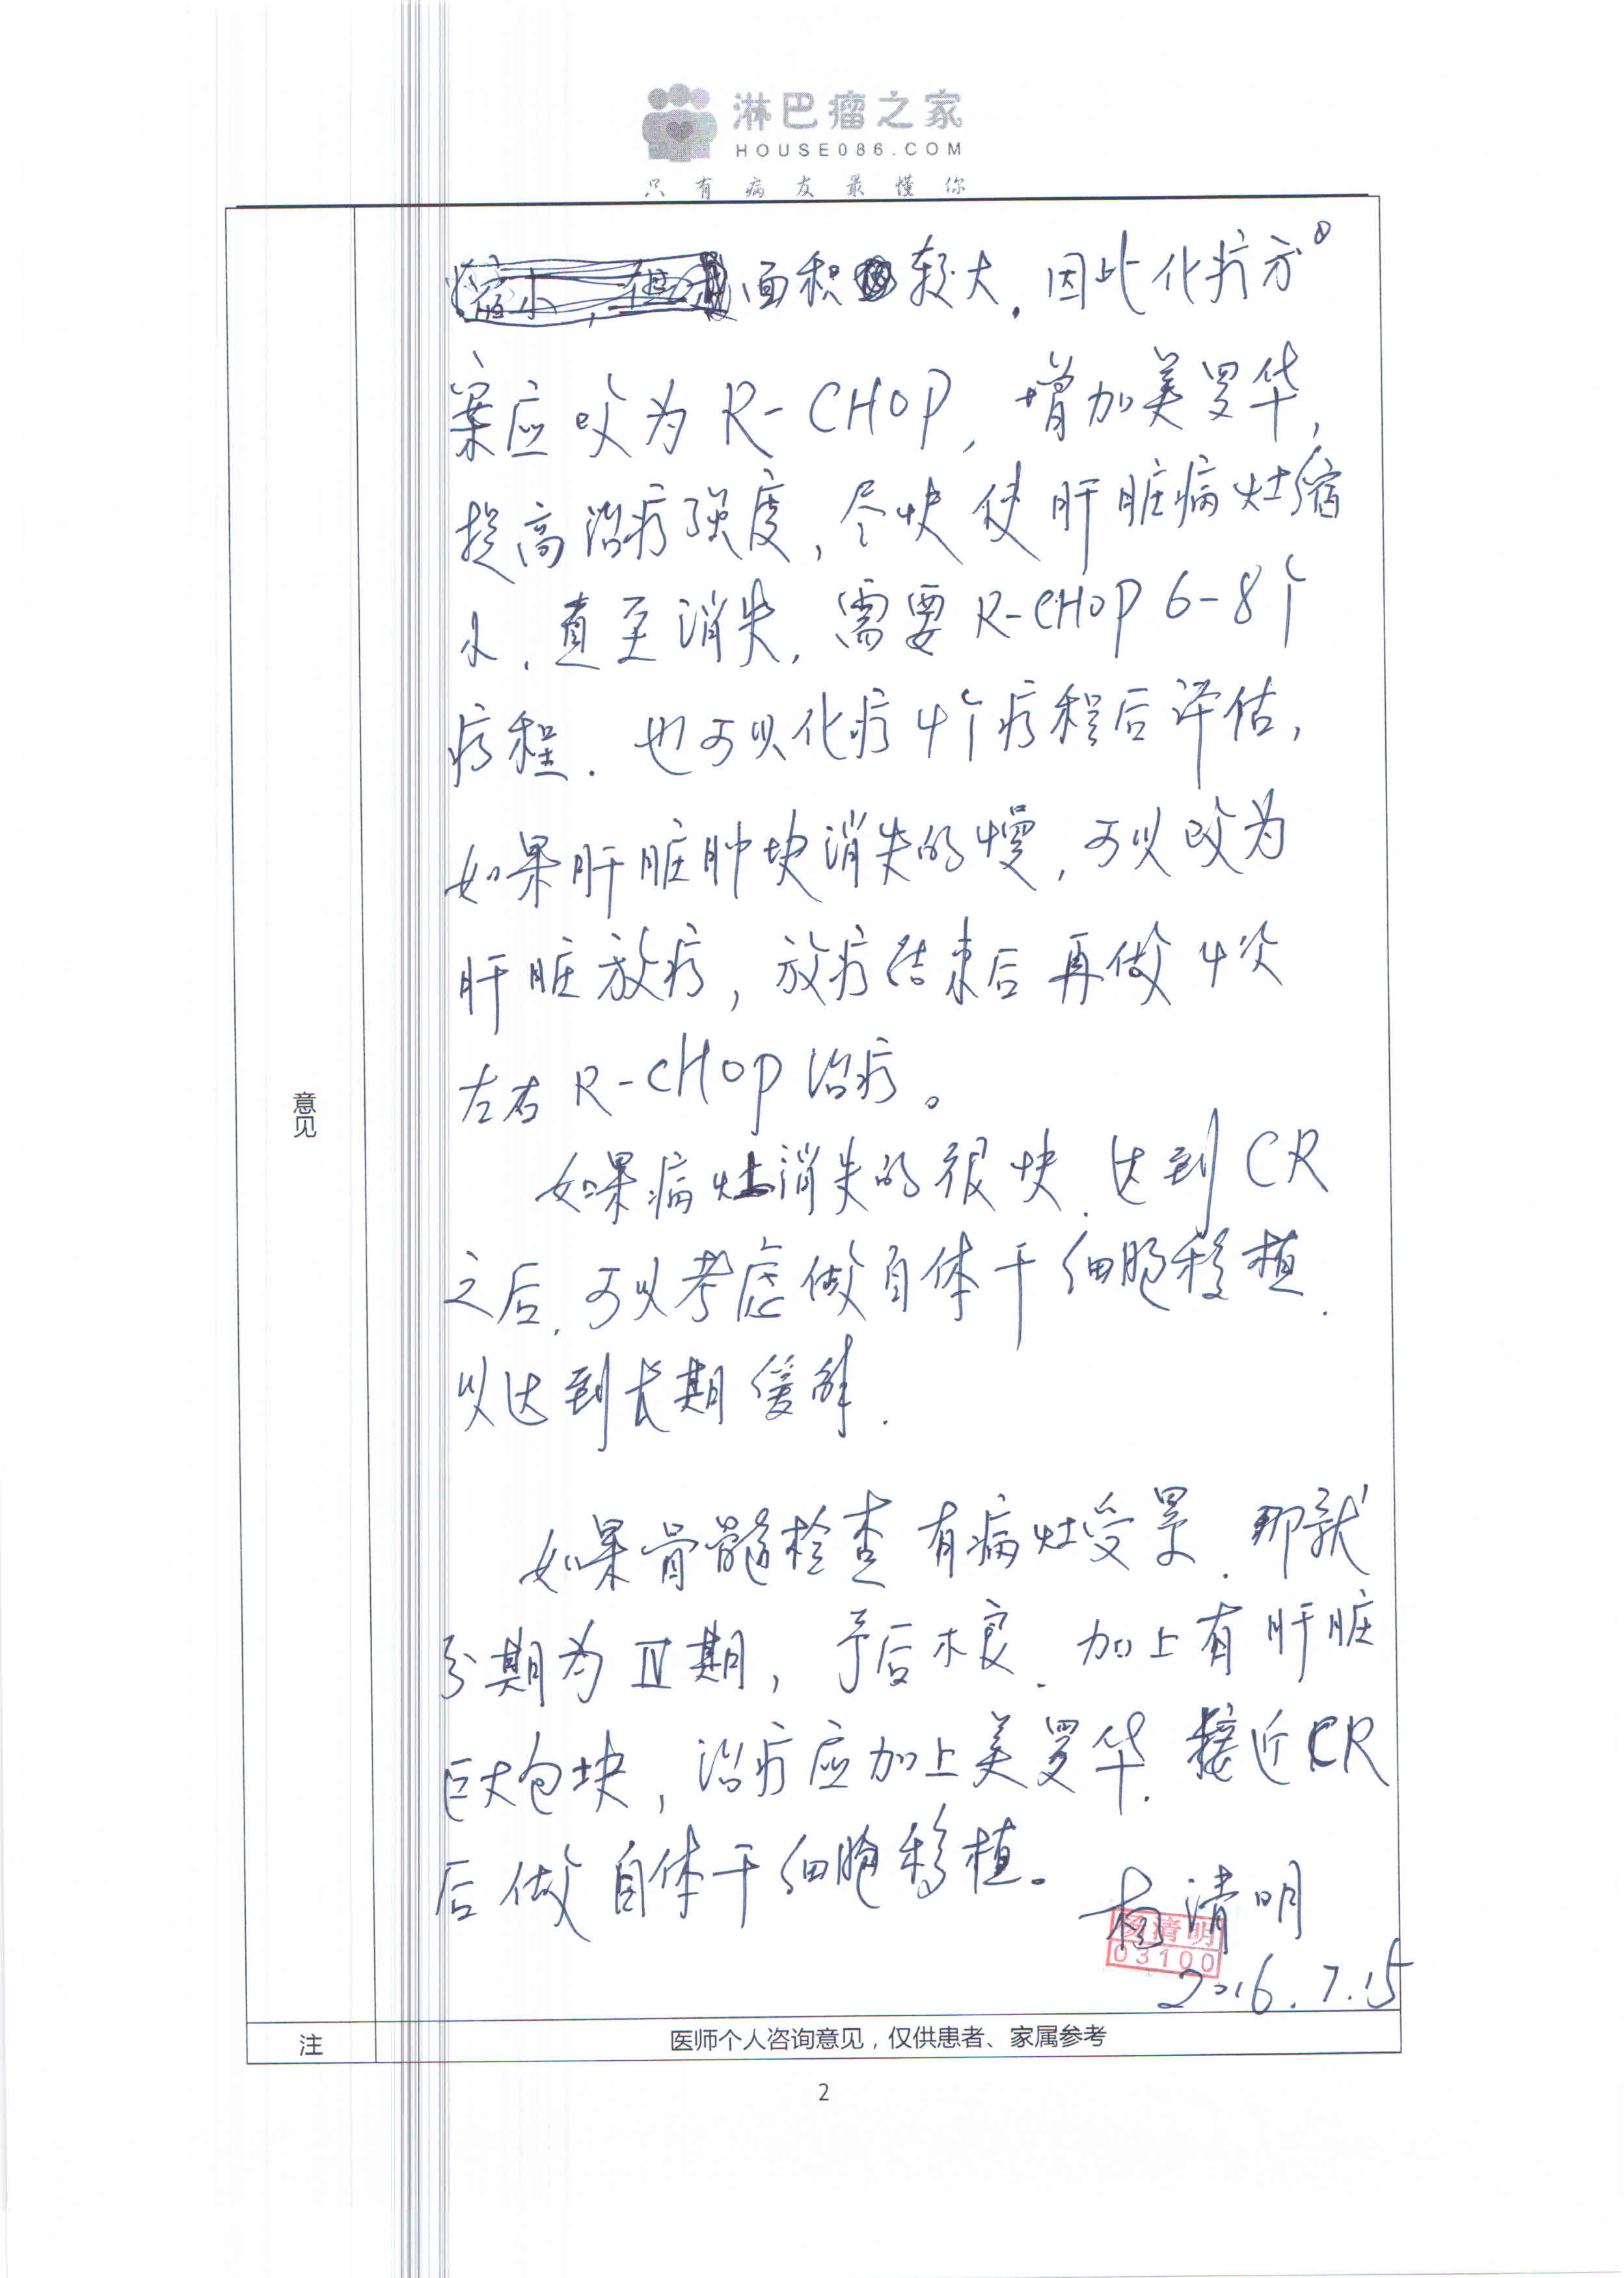 淋巴瘤之家
HOUSE086.COM
只有病友最懂你
面积较大.因此化疗方
案应改为R-CHOP,增加美罗华,
提高治疗强度,尽快使肝脏病灶缩
小.直至消失.需要R-CHOP 6-8个
疗程.也可以化疗4个疗程后评估,
如果肝脏肿块消失的慢,可以改为
肝脏放疗,放疗结束后再做4次
左右R-CHOP治疗。
如果病灶消失的很快.达到CR
之后.可以考虑做自体干细胞移植.
以达到长期缓解.
如果骨髓检查有病灶受累.那就
分期为Ⅳ期,予后不良.加上有肝脏
巨大包块,治疗应加上美罗华.接近CR
后做自体干细胞移植。
杨清明
杨清明
03100
2016.7.15
意见
注
医师个人咨询意见,仅供患者、家属参考
2